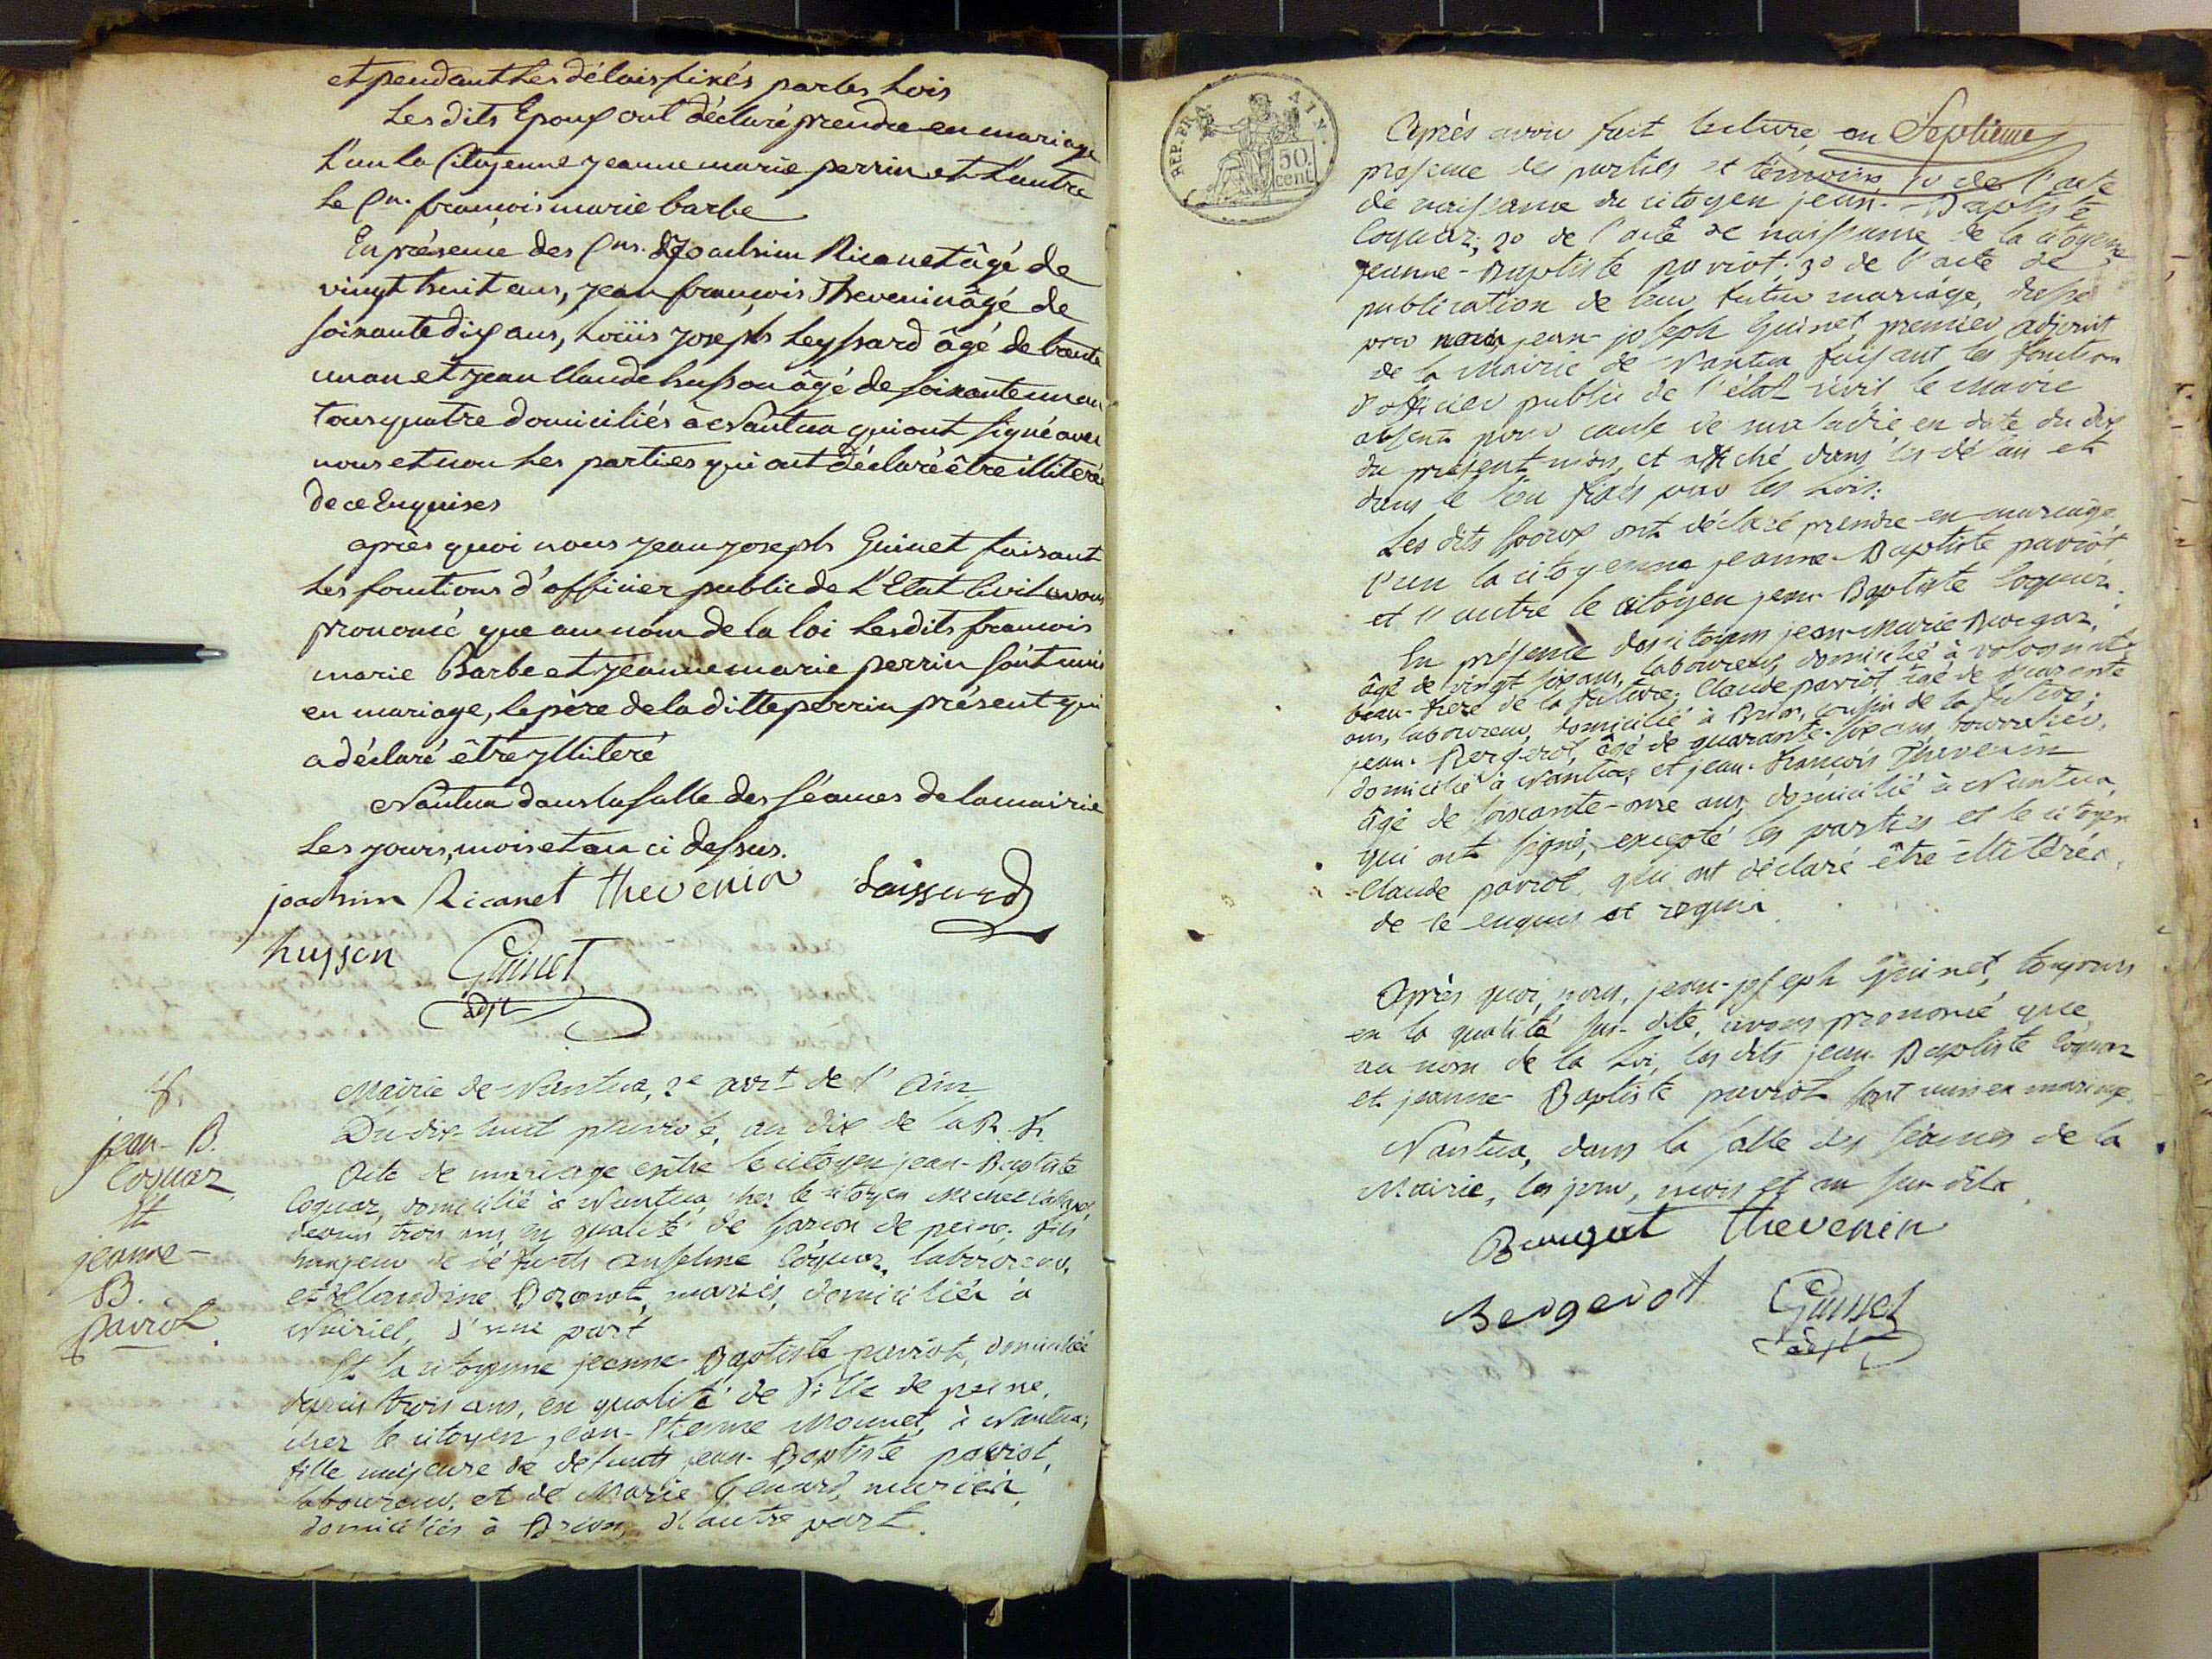 et pendant les délais fixés par les Lois
Les dits Epoux ont déclaré prendre en mariage
L'un la Citoyenne jeanne marie perrin et L'autre
le Cn. françois marie barbe
En présence des Cns. Joachim Ricanet âgé de
vingt huit ans, jean françois Thevenin âgé de
soixante dix ans, Loüis joseph Leyssard âgé de trente
un an et jean Claude husson âgé de soixante un an
tous quatre domiciliés à Nantua qui ont signé avec
nous et non les parties qui ont déclaré être illiteré
de ce Enquises
après quoi nous jean joseph Guinet faisant
les fonctions d'officier public de L'Etat Civil avons
prononcé que au nom de la loi lesdits francois
marie Barbe et jeanne marie perrin sont unis
en mariage, le père de la ditte perrin présent qui
a déclaré être ylliteré
Nantua dans la salle des séances de la mairie
les jours, mois et an ci dessus.
joachim Ricanet thevenin Laissard
huyson Guinet
adjt
8.
jean-B.
Coquaz
et
jeanne-
B.
pavrot
Mairie de Nantua, 2e arrt de l'Ain
Du dix-huit pluviose, an dix de la R. f.
Acte de mariage entre le citoyen jean-Baptiste
Coquaz, domicilié à Nantua, chez le citoyen Michel
depuis trois ans, en qualité de garcon de peine, fils
majeur de défunts anselme Coquaz, laboureur,
et Claudine Boronot, mariés, domiciliés à
Nairiel, d'une part
Et la citoyenne jeanne-Baptiste pavriot, domiciliée
depuis trois ans, en qualité de fille de peine,
chez le citoyen jean-Etienne Mounet, à Nantua;
fille majeure de défunts jean-Baptiste pavriot,
laboureur, et de Marie Genard, mariés,
domiciliés à Brion, d'autre part.
REP. FRA. AIN.
50
cent
Après avoir fait lecture, en Septieme
presence des parties et témoins, 1o de l'acte
de naissance du citoyen jean-Baptiste
Coquaz; 2o de l'acte de naissance de la citoyenne
jeanne-Baptiste pavriot; 3o de l'acte de
publication de leur futur mariage, dressé
par nous, jean-joseph Guinet, premier adjoint
de la Mairie de Nantua faisant les fonctions
d'officier public de l'état civil le Maire
absent pour cause de maladie, en date du dix
du présent mois, et affiché dans les délais et
dans le lieu fixés par les Lois:
Les dits Epoux ont déclaré prendre en mariage
l'un la citoyenne jeanne-Baptiste pavriot
et l'autre le citoyen jean-Baptiste Coquaz.
En présence des citoyens jean-Marie Burgaz,
âgé de vingt six ans, laboureur, domicilié à volognat,
beau-frere de la future; Claude pavriot, âgé de quarante
ans, laboureur, domicilié à Brion, cousin de la future;
jean-Bergerot, âgé de quarante-six ans, bourrelier,
domicilié à Nantua, et jean-francois Thevenin
âgé de soixante-onze ans, domicilié à Nantua,
qui ont signé, excepté les parties et le citoyen
Claude pavrot, qui ont déclaré être illitérés,
de ce enquis et requis
Après quoi, nous, jean-joseph Guinet, toujours
en la qualité sus-dite, avons prononcé que
au nom de la Loi, les dits jean-Baptiste Coquaz
et jeanne-Baptiste pavriot sont unis en mariage.
Nantua, dans la salle des séances de la
Mairie, les jour, mois et an sus-dits
Burgat thevenin
Bergerot Guinet
adjt